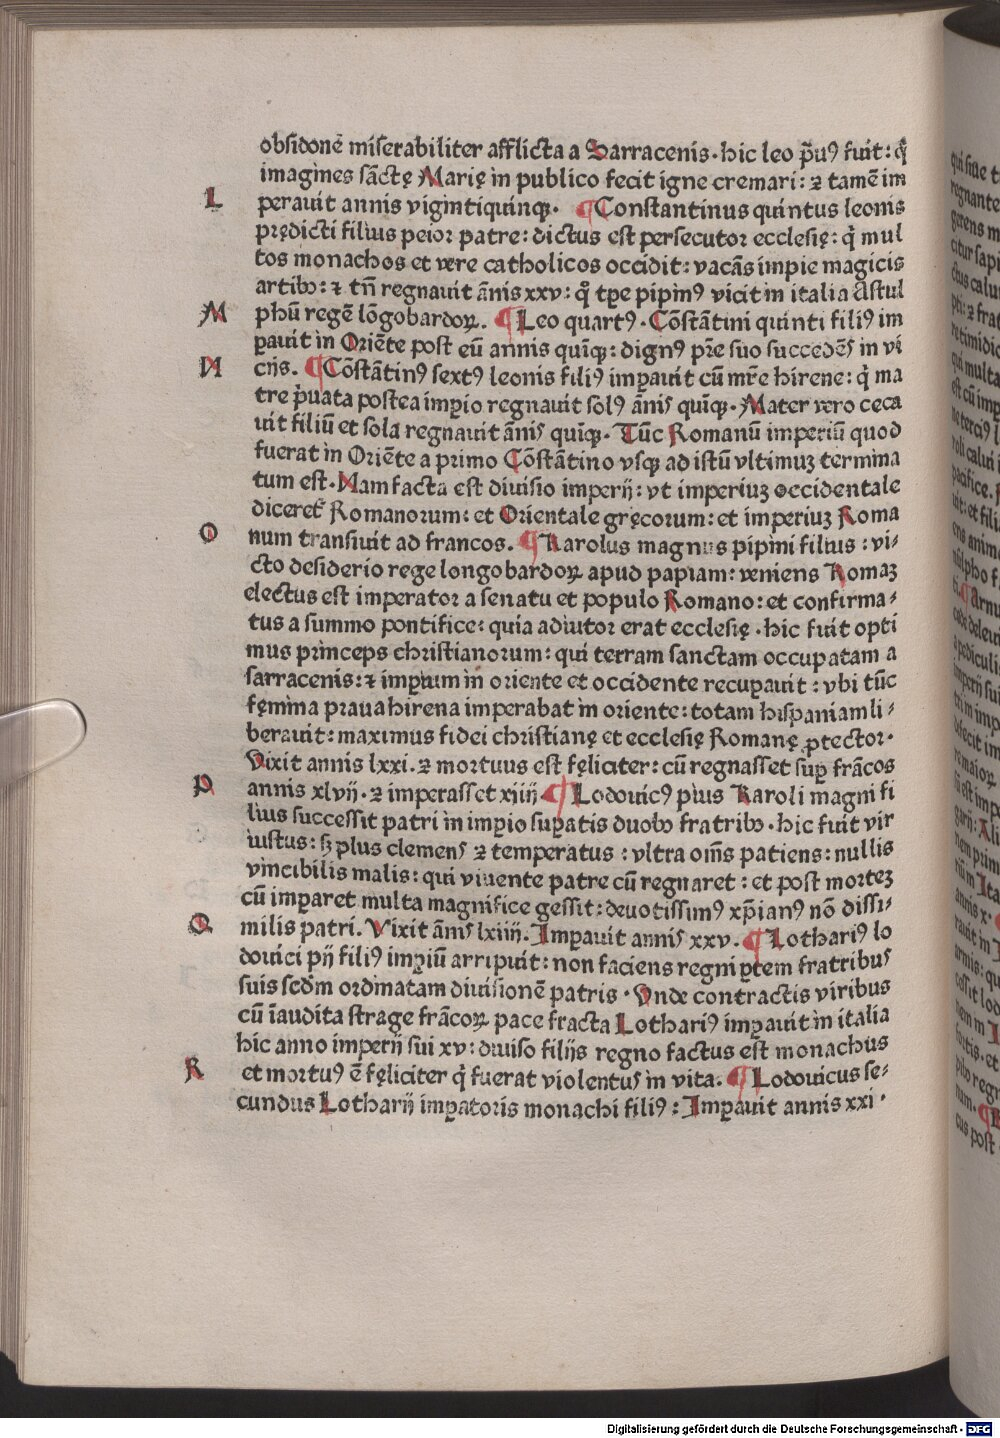 obsidonē miserabiliter afflicta a Sarracenis·hic leo p̄uꝰ fuit: q̄
imagines sāctę Marię in publico fecit igne cremari: ⁊ tamē im
L
perauit annis vigintiquinqꝫ· ¶Constantinus quintus leonis
prędicti filius peior patre: dictus est persecutor ecclesię: q̇ mul
tos monachos et vere catholicos occidit: vacās impie magicis
artibꝰ: ⁊ tn̄ regnauit ānis xxv: qͦ tꝑe pipinꝰ vicit in italia Astul
M
phū regē lōgobardoꝝ. ¶Leo quartꝰ·Cōstātini quinti filiꝰ im
ꝑauit in Oriēte post eū annis quīqꝫ: dignꝰ pr̄e suo succedēs in vi
N
cijs. ¶Cōstātinꝰ sextꝰ leonis filiꝰ imꝑauit cū mr̄e hirene: q̇ ma
tre p̄uata postea imꝑio regnauit solꝰ ānis quīqꝫ·Mater vero ceca
uit filiū et sola regnauit ānis quīqꝫ·Tūc Romanū imperiū quod
fuerat in Oriēte a primo Cōstātino vsqꝫ ad istū vltimuꝫ termina
tum est·Nam facta est diuisio imperij: vt imperiuꝫ occidentale
diceret᷑ Romanorum: et Orientale gręcorum: et imperiuꝫ Roma
O
num transiuit ad francos. ¶Karolus magnus pipini filius : vi⸗
cto desiderio rege longobardoꝝ apud papiam: veniens Romaꝫ
electus est imperator a senatu et populo Romano: et confirma⸗
tus a summo pontifice: quia adiutor erat ecclesię·hic fuit opti
mus princeps christianorum: qui terram sanctam occupatam a
sarracenis: ⁊ imꝑium in oriente et occidente recuꝑauit : vbi tūc
fęmina praua hirena imperabat in oriente: totam hispaniam li⸗
berauit: maximus fidei christianę et ecclesię Romanę ꝓtector·
Vixit annis lxxi. ⁊ mortuus est fęliciter: cū regnasset suꝑ frācos
P
annis xlvij·⁊ imperasset xiiij ¶Lodouicꝰ pius Karoli magni fi
lius successit patri in imꝑio suꝑatis duobꝰ fratribꝰ·hic fuit vir
iustus: sꝫ plus clemens ⁊ temperatus : vltra om̄s patiens: nullis
vincibilis malis: qui viuente patre cū regnaret : et post morteꝫ
cū imꝑaret multa magnifice gessit: deuotissimꝰ xp̄ianꝰ nō dissi⸗
Q
milis patri. Vixit ānis lxiiij. Imꝑauit annis xxv. ¶Lothariꝰ lo
douici pij filiꝰ imꝑiū arripuit: non faciens regni ꝑtem fratribus
suis scd̄m ordinatam diuisionē patris·Vnde contractis viribus
cū īaudita strage frācoꝝ pace fracta Lothariꝰ imꝑauit in italia
hic anno imperij sui xv: diuiso filijs regno factus est monachus
R
et mortuꝰ ē fęliciter q̇ fuerat violentus in vita. ¶Lodouicus se⸗
cundus Lotharij imꝑatoris monachi filiꝰ: Imꝑauit annis xxi·
Digitalisierung gefördert durch die Deutsche Forschungsgemeinschaft - DFG